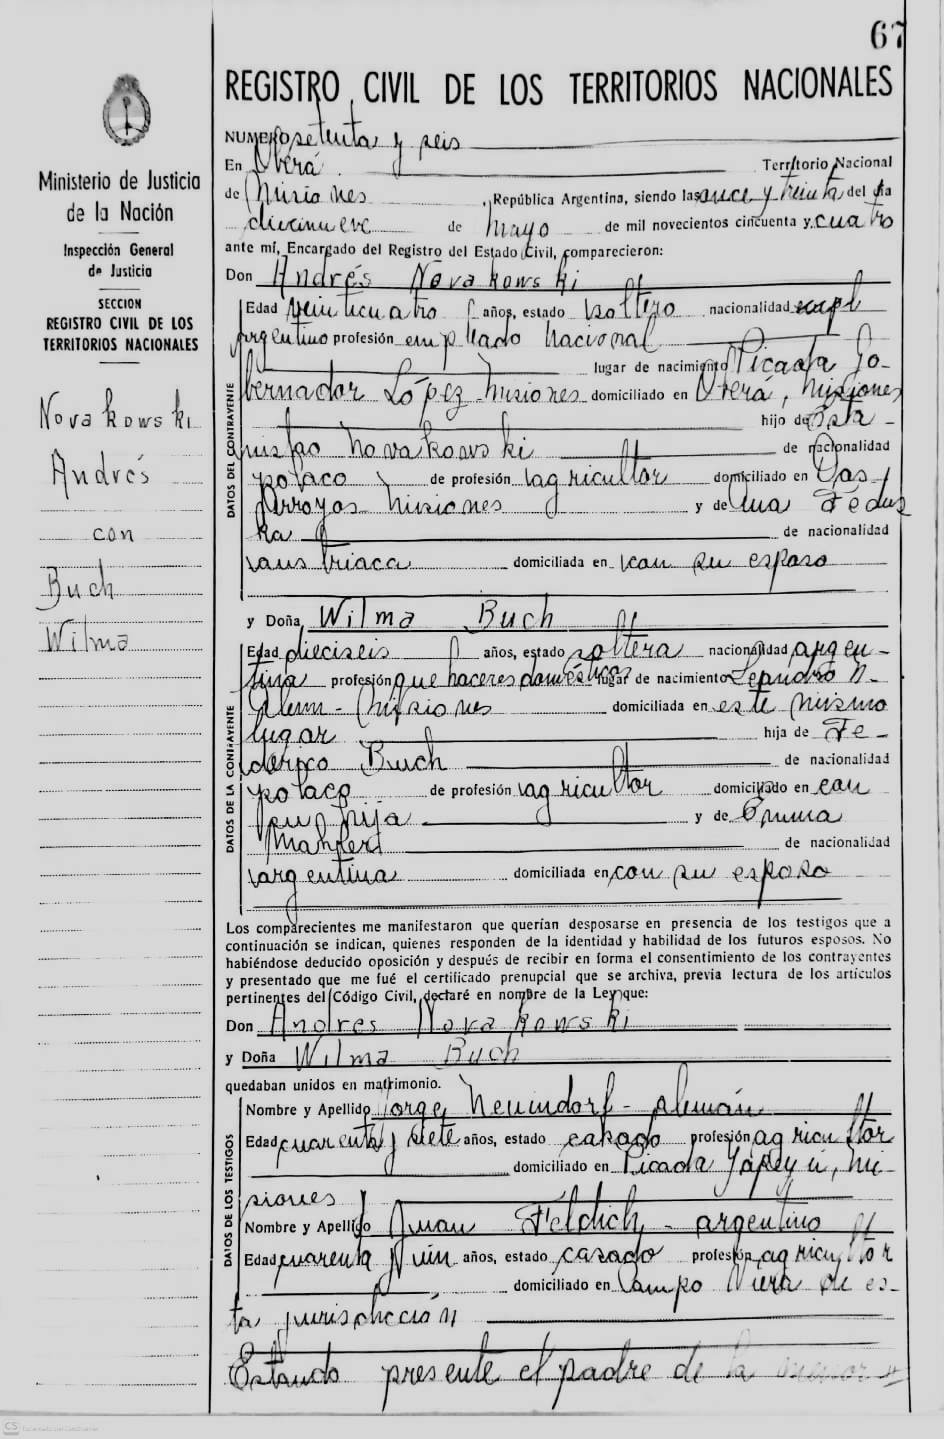 67
REGISTRO CIVIL DE LOS TERRITORIOS NACIONALES
NUMERO setenta y seis
En Oberá Territorio Nacional
de Misiones, República Argentina, siendo las once y treinta del día
diecinueve de Mayo de mil novecientos cincuenta y cuatro
ante mí, Encargado del Registro del Estado Civil, comparecieron:
Don Andrés Novakowski
DATOS DEL CONTRAYENTE
Edad veinticuatro años, estado soltero nacionalidad
argentino profesión empleado nacional
lugar de nacimiento Picada Go-
bernador López Misiones domiciliado en Oberá, Misiones
hijo de Esta-
nislao Novakowski de nacionalidad
polaco de profesión agricultor domiciliado en Dos
Arroyos Misiones y de Ana Fedus
ka de nacionalidad
austriaca domiciliada en con su esposo
y Doña Wilma Buch
DATOS DE LA CONTRAYENTE
Edad dieciseis años, estado soltera nacionalidad argen-
tina profesión quehaceres domésticos lugar de nacimiento Leandro N.
Alem - Misiones domiciliada en este mismo
lugar hija de Fe-
derico Buch de nacionalidad
polaco de profesión agricultor domiciliado en con
su hija y de Emma
de nacionalidad
argentina domiciliada en con su esposo
Los comparecientes me manifestaron que querían desposarse en presencia de los testigos que a
continuación se indican, quienes responden de la identidad y habilidad de los futuros esposos. No
habiéndose deducido oposición y después de recibir en forma el consentimiento de los contrayentes
y presentado que me fué el certificado prenupcial que se archiva, previa lectura de los artículos
pertinentes del Código Civil, declaré en nombre de la Ley que:
Don Andres Novakowski
y Doña Wilma Buch
quedaban unidos en matrimonio.
DATOS DE LOS TESTIGOS
Nombre y Apellido Jorge Neuendorf - alemán
Edad cuarenta y siete años, estado casado profesión agricultor
domiciliado en Picada Yapeyú, Mi-
siones
Nombre y Apellido Juan Feldich - argentino
Edad cuarenta y un años, estado casado profesión agricultor
domiciliado en Campo Viera de es-
ta jurisdicción
Estando presente el padre de la menor
Ministerio de Justicia
de la Nación
Inspección General
de Justicia
SECCION
REGISTRO CIVIL DE LOS
TERRITORIOS NACIONALES
Novakowski
Andrés
con
Buch
Wilma
CS